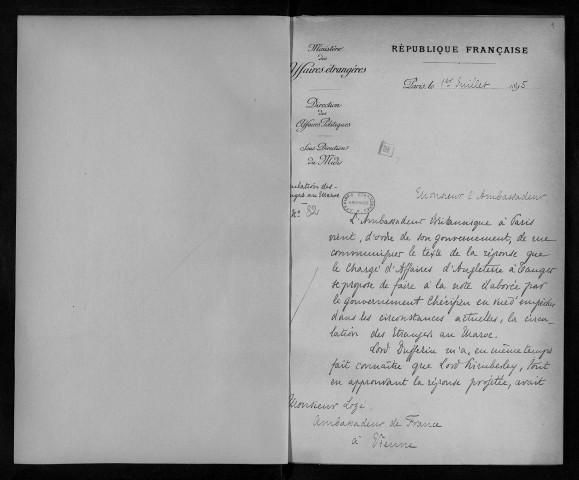 Ministère
des
Affaires étrangères
Direction
des
Affaires Politiques
Sous Direction
du Midi
RÉPUBLIQUE FRANÇAISE
Paris, le 1er Juillet 1895
culation des
angers au Maroc
N° 82
Monsieur l'Ambassadeur
L'Ambassadeur Britannique à Paris
vient, d'ordre de son gouvernement, de me
communiquer le texte de la réponse que
le Chargé d'Affaires d'Angleterre à Tanger
se propose de faire à la note élaborée par
le gouvernement Chérifien en vue d'empêcher,
dans les circonstances actuelles, la circu-
lation des Etrangers au Maroc.
Lord Dufferin m'a, en même temps
fait connaître que Lord Kimberley, tout
en approuvant la réponse projetée, avait
Monsieur Lozé
Ambassadeur de France
à Vienne